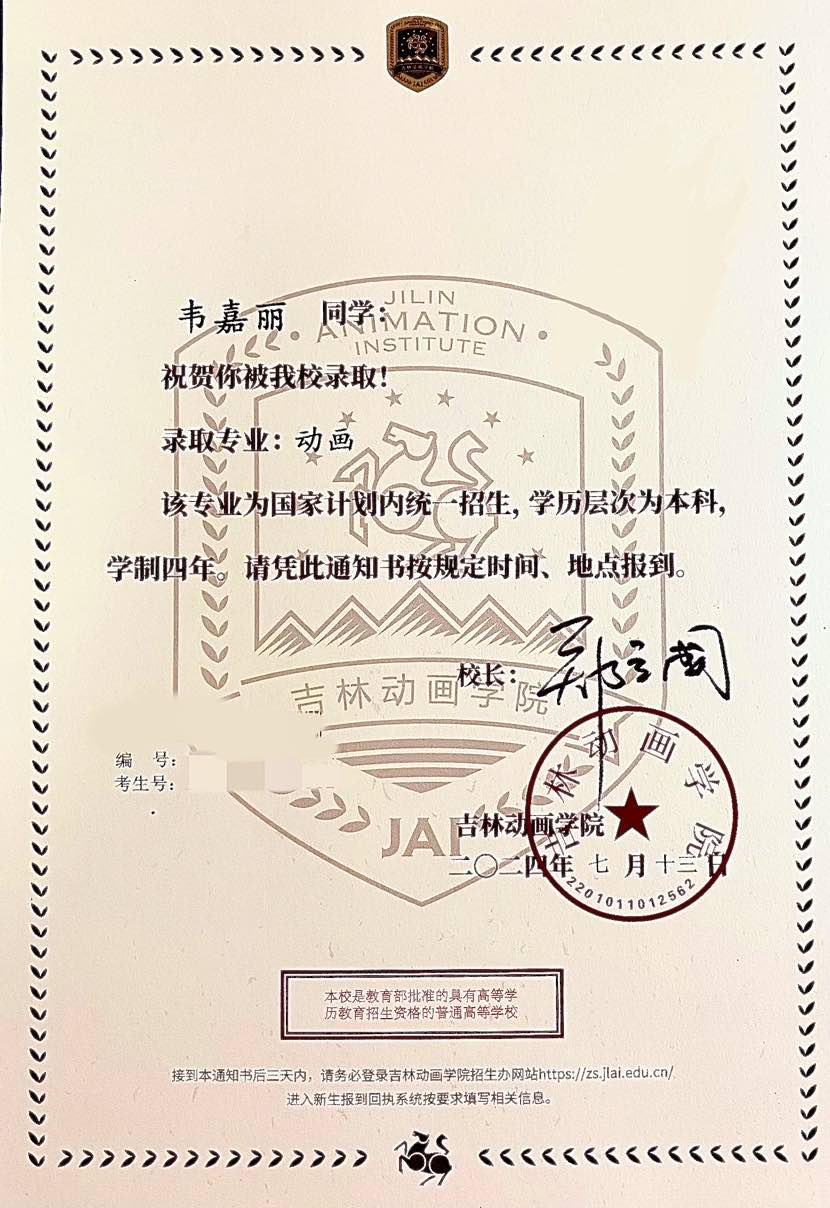 韦嘉丽 同学：
JILIN
ANIMATION
INSTITUTE
祝贺你被我校录取！
录取专业：动画
该专业为国家计划内统一招生，学历层次为本科，
学制四年。请凭此通知书按规定时间、地点报到。
校长：郑立国
吉林动画学院
编 号：
考生号：
JAI
吉林动画学院
吉林动画学院
二〇二四年 七 月 十三 日
2201011012562
本校是教育部批准的具有高等学
历教育招生资格的普通高等学校
接到本通知书后三天内，请务必登录吉林动画学院招生办网站https://zs.jlai.edu.cn/
进入新生报到回执系统按要求填写相关信息。